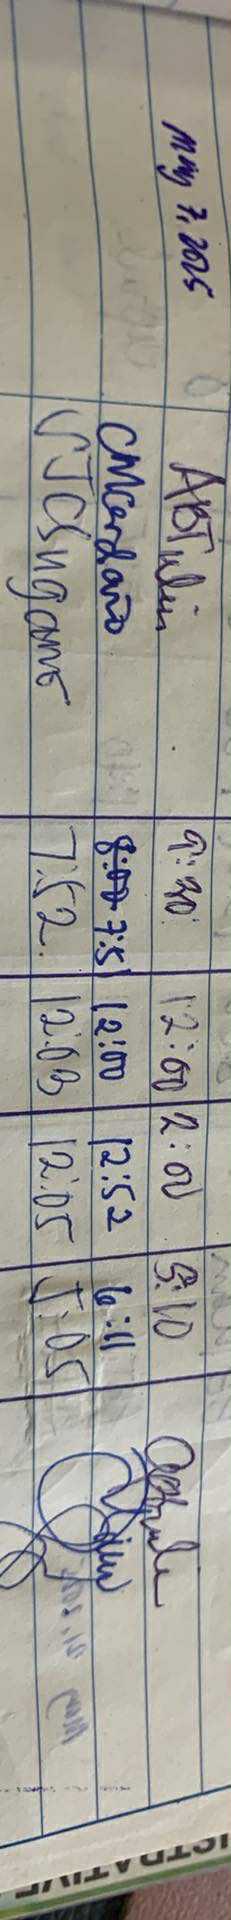 May 7, 2025
ABTulin 9:30 12:00 2:00 5:10
CMCardaño 8:00 7:51 12:00 12:52 6:11
VJCSugano 7:52 12:03 12:05 5:05
STRATIVE